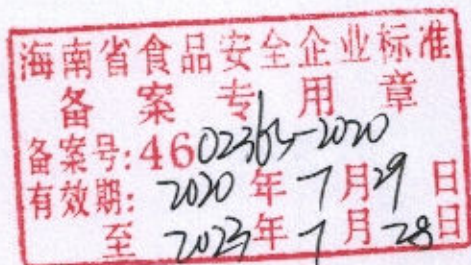 海南省食品安全企业标准
备案专用章
备案号:4602365-2020
有效期: 2020年7月29日
至 2023年7月28日